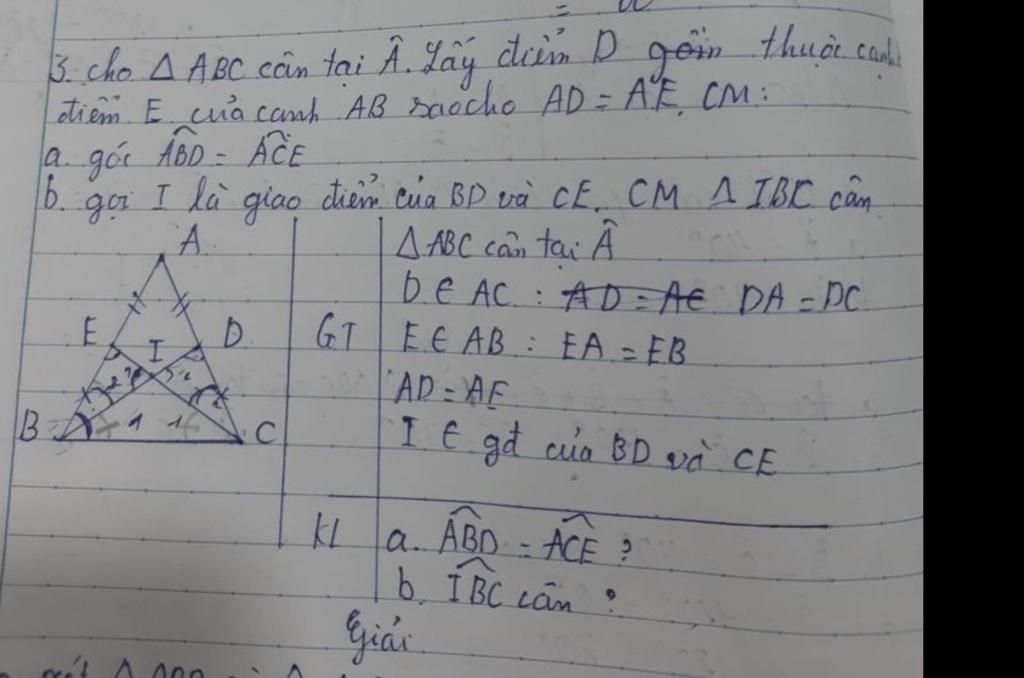 3. cho Δ ABC cân tại Â. Lấy điểm D gồm thuộc cạnh
điểm E của cạnh AB sao cho AD = AE. CM:
a. góc ABD = ACE
b. gọi I là giao điểm của BD và CE. CM Δ IBC cân
A
E I D
B 1 1 C
2 2
GT
Δ ABC cân tại Â
D ∈ AC : AD = AE DA = DC
E ∈ AB : EA = EB
AD = AE
I ∈ gđ của BD và CE
KL
a. ABD = ACE ?
b. IBC cân ?
Giải